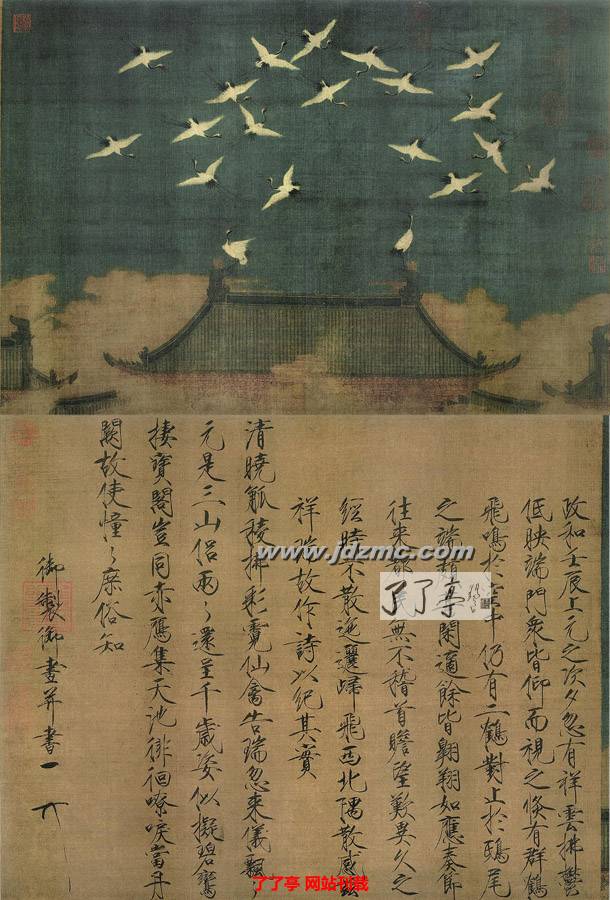 政和壬辰上元之次夕忽有祥雲拂鬱
低映端門衆皆仰而視之倏有群鶴
飛鳴於空中仍有二鶴對止於鴟尾
之端頗閑適餘皆翱翔如應奏節
往來都民無不稽首瞻望歎異久之
經時不散迤邐歸飛西北隅散感茲
祥瑞故作詩以紀其實
清曉觚稜拂彩霓仙禽告瑞忽來儀飄々
元是三山侶兩々還呈千歲姿似擬碧鸞
棲寶閣豈同赤鴈集天池徘徊嘹唳當丹
闕故使憧々庶俗知
御製御畫并書
www.jdzmc.com
了了亭
了了亭 网站刊载